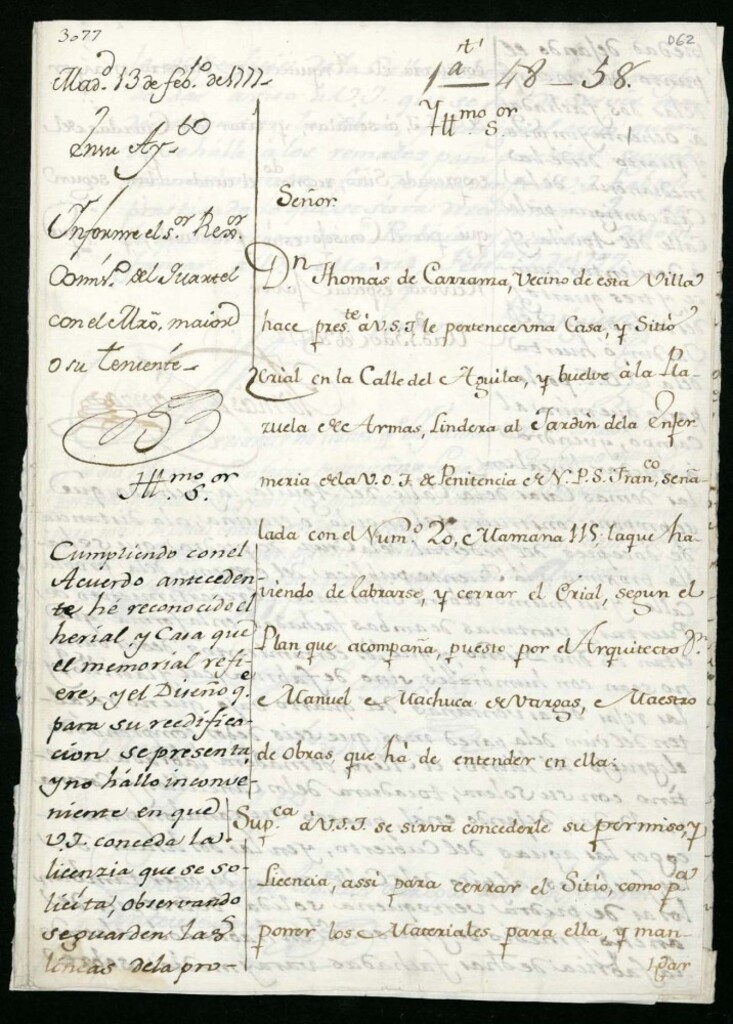 3077
062
Mad.d 13 de feb.ro de 1777
1a 48-58.
En su Ay.to
Informe el s.or Rex.or
Com.o del Quartel
con el Mro, maior
o su teniente
Ill.mo s.or
Cumpliendo con el
Acuerdo anteceden-
te hé reconocido el
herial y Casa que
el memorial refi-
ere, y el Diseño q.e
para su reedifica-
cion se presenta,
y no hállo inconve-
niente en que
V.I. conceda la
licenzia que se so-
licita, observando
se guarden las
líneas de la pro-
Ill.mo s.or
Señor.
Dn Thomás de Carrama, Vecino de esta Villa
hace pres.te á V.S.I. le pertenece una Casa, y Sitio
Erial en la Calle del Aguila, y buelve á la Pla-
zuela de Armas, Lindera al Jardin dela Enfer-
meria de la V.O.T. de Penitencia de N.P.S. Fran.co, seña-
lada con el Num.o 20, Manzana 115, la que ha-
viendo de labrarse, y cerrar el Erial, segun el
Plan, que acompaña, puesto por el Arquitecto D.n
Manuel Machuca de Vargas, Maestro
de Obras, que há de entender en ella:
Sup.ca á V.S.I. se sirva concederle su permiso, y
Licencia, assi para cerrar el Sitio, como p.a
poner los Materiales para ella, y man-
dar